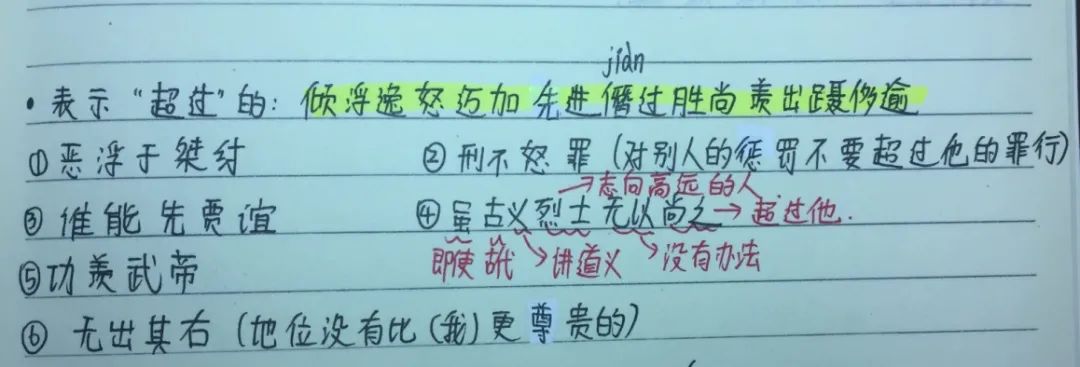 jiàn
• 表示“超过”的: 倾浮逸怒迈加先进僭过胜尚羡出蹑侈逾
①恶浮于桀纣 ②刑不怒罪(对别人的惩罚不要超过他的罪行)
→志向高远的人
③谁能先贾谊 ④虽古义烈士无以尚之→超过他.
⑤功羡武帝 即使 古代 →讲道义 →没有办法
⑥无出其右(地位没有比(我)更尊贵的)